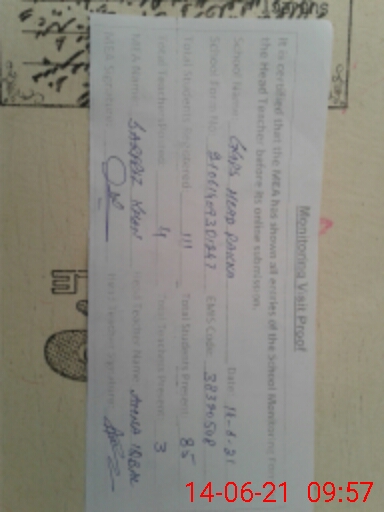 Monitoring Visit Proof
It is certified that the MEA has shown all entries of the School Monitoring Form to
the Head Teacher before its online submission.
School Name: GGPS HEAD PAKKA Date: 14-6-21
School Form No: EMIS Code: 38370508
Total Students Registered: 111 Total Students Present: 85
Total Teachers Posted: 4 Total Teachers Present: 3
MEA Name: SARFRAZ KHAN Head Teacher Name: AMNA IQBAL
MEA Signature: Head Teacher Signature:
14-06-21 09:57